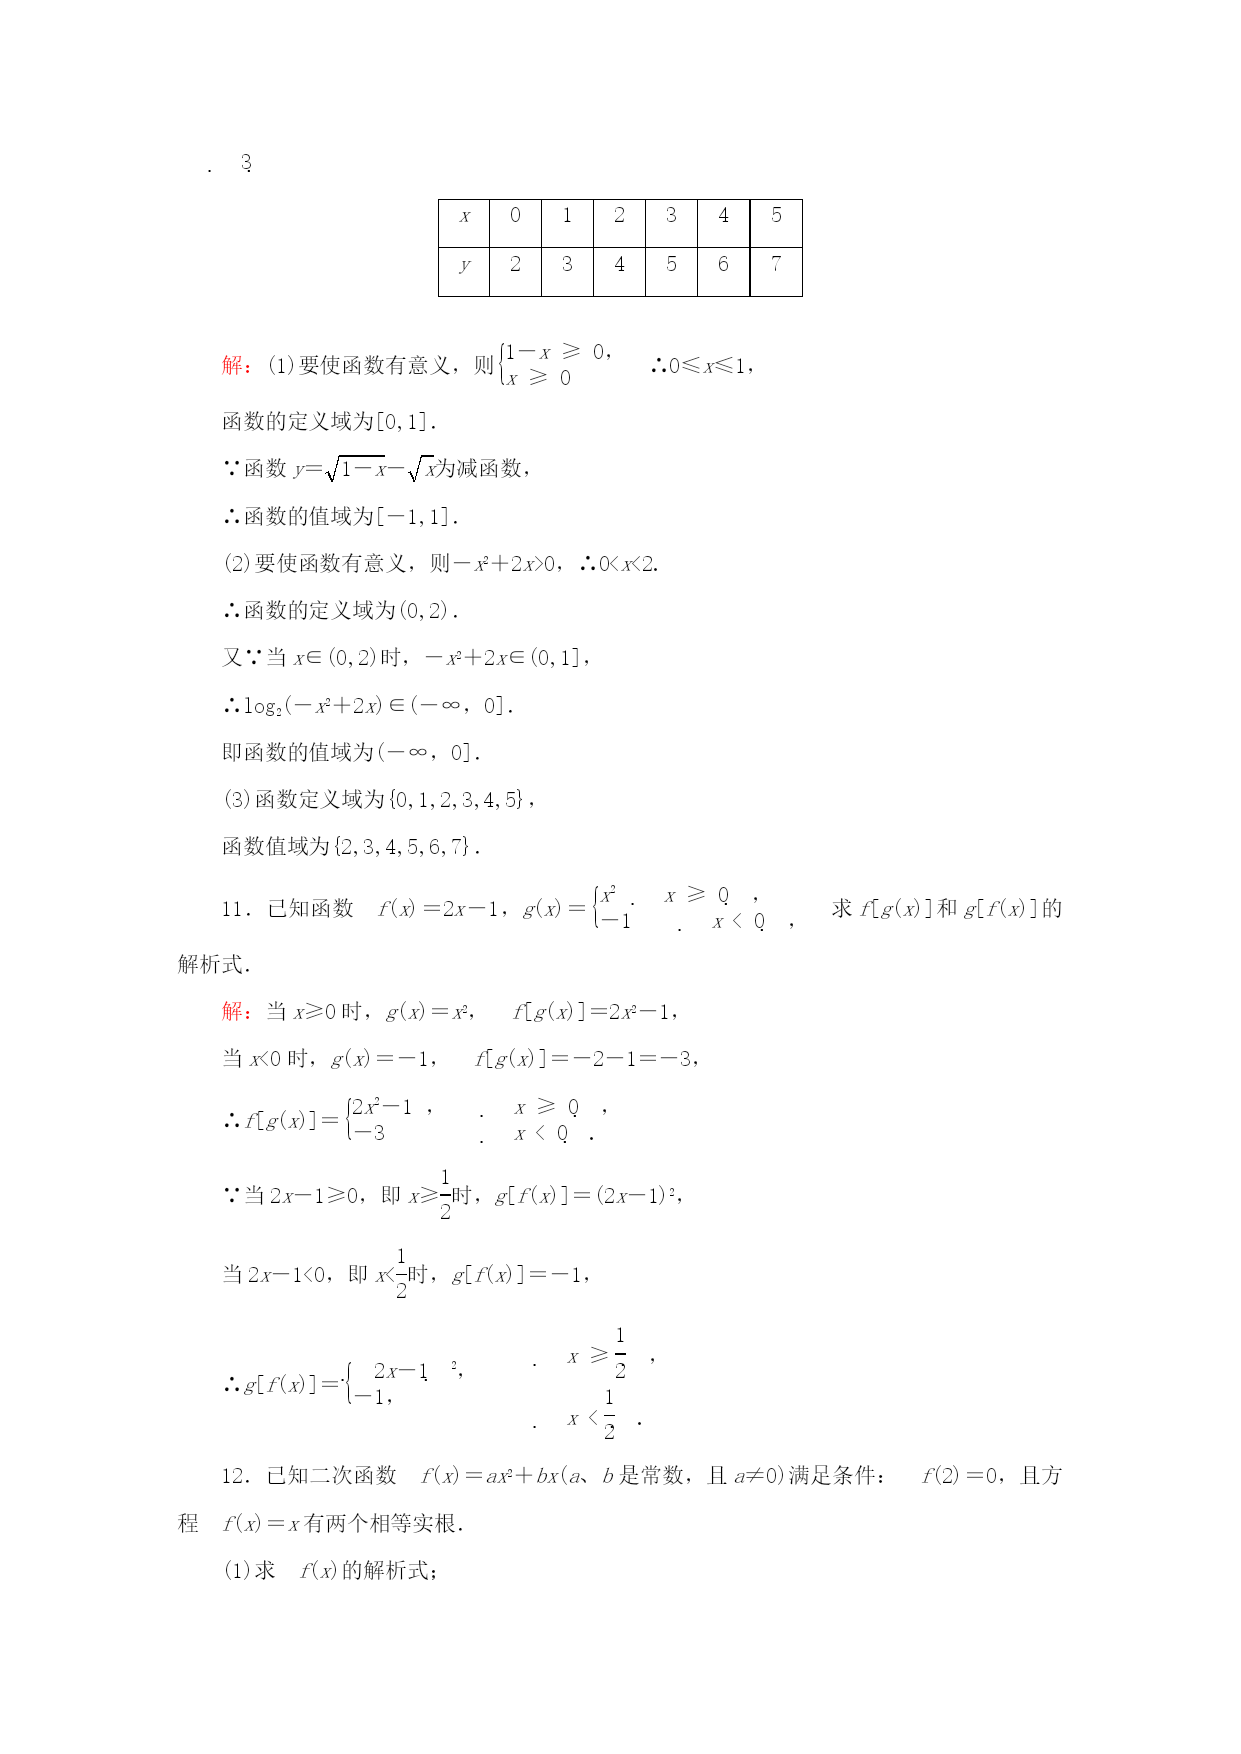 . 3.
x 0 1 2 3 4 5
y 2 3 4 5 6 7
解：(1)要使函数有意义，则{1－x ≥ 0， x ≥ 0 ∴0≤x≤1，
函数的定义域为[0,1]．
∵函数 y＝√1－x－√x为减函数，
∴函数的值域为[－1,1]．
(2)要使函数有意义，则－x²＋2x>0，∴0<x<2.
∴函数的定义域为(0,2)．
又∵当 x∈(0,2)时，－x²＋2x∈(0,1]，
∴log₂(－x²＋2x)∈(－∞，0]．
即函数的值域为(－∞，0]．
(3)函数定义域为{0,1,2,3,4,5}，
函数值域为{2,3,4,5,6,7}．
11．已知函数 f(x)＝2x－1，g(x)＝{x² . x ≥ 0. ， －1 . x < 0. ， 求 f[g(x)]和 g[f(x)]的
解析式．
解：当 x≥0 时，g(x)＝x²， f[g(x)]＝2x²－1，
当 x<0 时，g(x)＝－1， f[g(x)]＝－2－1＝－3，
∴f[g(x)]＝{2x²－1 ， . x ≥ 0. ， －3 . x < 0. ．
∵当 2x－1≥0，即 x≥1/2时，g[f(x)]＝(2x－1)²，
当 2x－1<0，即 x<1/2时，g[f(x)]＝－1，
∴g[f(x)]＝.{ 2x－1. ²， . x ≥1/2. ， －1， . x <1/2. ．
12．已知二次函数 f(x)＝ax²＋bx(a、b 是常数，且 a≠0)满足条件： f(2)＝0，且方
程 f(x)＝x 有两个相等实根．
(1)求 f(x)的解析式；